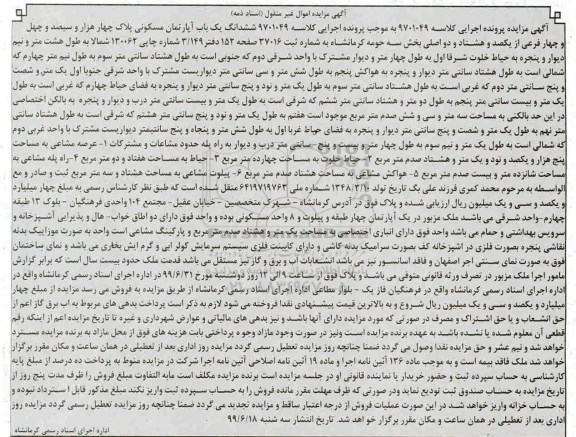 آگهی مزایده اموال غیر منقول (اسناد ذمه)
آگهی مزایده پرونده اجرایی کلاسه ۹۷۰۱۰۴۹ به موجب پرونده اجرایی کلاسه ۹۷۰۱۰۴۹ ششدانگ یک باب آپارتمان مسکونی پلاک چهار هزار و سیصد و چهل
و چهار فرعی از یکصد و هشتاد و دو اصلی بخش سه حومه کرمانشاه به شماره ثبت ۳۷۰۱۶ صفحه ۱۵۳ دفتر ۳/۱۴۹ شماره چاپی ۱۳۰۰۶۲ شمالا به طول هشت متر و نیم
دیوار و پنجره به حیاط خلوت شرقا اول به طول چهار متر و دیوار مشترک با واحد شرقی دوم که جنوبی است به طول هشتاد سانتی متر سوم به طول نیم متر چهارم که
شمالی است به طول هشتاد سانتی متر دیوار و پنجره به هواکش پنجم به طول شش متر و سی سانتی متر دیواریست مشترک با واحد شرقی جنوبا اول یک متر و شصت
و پنج سانتی متر دوم که غربی است به طول هشتاد سانتی متر سوم به طول یک متر و نود و پنج سانتی متر دیوار و پنجره به فضای حیاط چهارم که غربی است به طول
یک متر و بیست سانتی متر پنجم به طول دو متر و هشتاد سانتی متر ششم که شرقی است به طول یک متر و بیست سانتی متر درب و دیوار و پنجره به بالکن اختصاصی
در این حد بالکنی به مساحت سه متر و سی و شش صدم متر مربع موجود است هفتم به طول یک متر و نود و پنج سانتی متر هشتم که شرقی است به طول هشتاد سانتی
متر نهم به طول یک متر و شصت و پنج سانتی متر دیوار و پنجره به فضای حیاط غربا اول به طول شش متر و پنجاه و پنج سانتیمتر دیواریست مشترک با واحد غربی دوم
که شمالی است به طول یک متر و نیم سوم به طول چهار متر و سانتی متر درب و دیوار به راه پله حدود مشاعات و مشترکات ۱- عرصه مشاعی به مساحت
پنج هزار و یکصد و نود و یک متر و هشتاد صدم متر مربع خلوت به مساحت چهارده متر مربع ۳- حیاط به مساحت هفتاد و دو متر مربع ۴- راه پله مشاعی به
مساحت شانزده متر و بیست صدم متر مربع ۵- هواکش مشاعی به مساحت هشتاد صدم متر مربع ۶- پیلوت مشاعی به مساحت هشتاد و سه متر مربع ثبت و صادر و مع
الواسطه به مرحوم محمد کمری فرزند علی بگ تاریخ تولد ۱۳۴۸/۳/۱۰ شماره ملی ۶۴۱۹۷۱۹۷۶۳ منتقل شده است که طبق نظر کارشناس رسمی به مبلغ چهار میلیارد
و یکصد و سی و یک میلیون ریال ارزیابی شده و پلاک فوق در آدرس کرمانشاه - شهرک متخصصین - خیابان عقیل - مجتمع ۱۰۴ واحدی فرهنگیان - بلوک ۱۳ طبقه
چهارم - واحد شرقی می باشد ملک مزبور در یک آپارتمان چهار طبقه و پیلوت و ۸ واحد مسکونی بوده و واحد فوق دارای دو اطاق خواب - هال و پذیرایی آشپزخانه و
سرویس بهداشتی و حمام می باشد واحد فوق دارای انباری اختصاصی به مساحت یک متر و هشتاد صدم متر مربع و پارکینگ مشاعی است واحد به صورت موزاییک بدنه
نقاشی پنجره بصورت فلزی در اشپزخانه کف بصورت سرامیک بدنه کاشی و دارای کابینت فلزی سیستم سرمایش کولر ابی و گرم ایش بخاری می باشد و نمای ساختمان
فوق به صورت نمای سنتی اجر اصفهان و فاقد اسانسور نیز می باشد انشعابات آب و برق و گاز نیز مستقل می باشد قدمت ملک حدود بیست سال است که برابر گزارش
مامور اجرا ملک مزبور در تصرف ورثه قانونی متوفی می باشد و پلاک فوق از ساعت ۹ الی ۱۲ روز دوشنبه مورخ ۹۹/۶/۳۱ در اداره اجرای اسناد رسمی کرمانشاه واقع در
اداره اجرای اسناد رسمی کرمانشاه واقع در فرهنگیان فاز یک - بلوار مطاعی اداره اجرای اسناد رسمی کرمانشاه از طریق مزایده به فروش می رسد مزایده از مبلغ چهار
میلیارد و یکصد و سی و یک میلیون ریال شروع و به بالاترین قیمت پیشنهادی نقدا فروخته می شود لازم به ذکر است پرداخت بدهی های مربوط به اب برق گاز اعم از
حق انشعاب و یا حق اشتراک و مصرف در صورتی که مورد مزایده دارای آنها باشد و نیز بدهی های مالیاتی و عوارض شهرداری و غیره تا تاریخ مزایده اعم از اینکه رقم
قطعی آن معلوم شده یا نشده باشد به عهده برنده مزایده است ونیز در صورت وجود مازاد وجوه پرداختی بابت هزینه های فوق از محل مازاد به برنده مزایده مسترد
خواهد شد و نیم عشر و حق مزایده نقدا وصول می گردد ضمنا چنانچه روز مزایده تعطیل رسمی گردد مزایده روز اداری بعد از تعطیلی در همان ساعت و مکان مقرر برگزار
خواهد شد ملک فاقد بیمه است و به موجب ماده ۱۳۶ آئین نامه اجرا و ماده ۱۹ آئین نامه اصلاحی آئین نامه اجرا شرکت در مزایده منوط به پرداخت ده درصد از مبلغ پایه
کارشناسی به حساب سپرده ثبت و حضور خریدار یا نماینده قانونی او در جلسه مزایده است برنده مزایده مکلف است مابه التفاوت مبلغ فروش را ظرف مدت پنج روز از
تاریخ مزایده به حساب صندوق ثبت تودیع نماید ودر صورتی که ظرف مهلت مقرر مانده فروش را به حساب سپرده ثبت واریز نکند مبلغ مذکور قابل استرداد نبوده و
به حساب خزانه واریز خواهد شد در این صورت عملیات فروش از درجه اعتبار ساقط و مزایده تجدید می گردد ضمنا چنانچه روز مزایده تعطیل رسمی گردد مزایده روز
اداری بعد از تعطیلی در همان ساعت و مکان مقرر برگزار خواهد شد. تاریخ انتشار سه شنبه ۹۹/۶/۱۸
اداره اجرای اسناد رسمی کرمانشاه